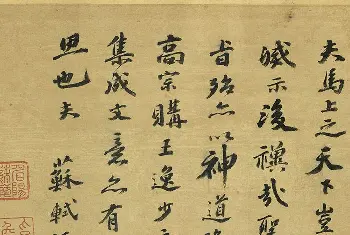 夫馬上之天下豈
緘示後禩哉聖
旨殆亦以神道
高宗購王逸少
集成文意亦有
思也夫
蘇軾